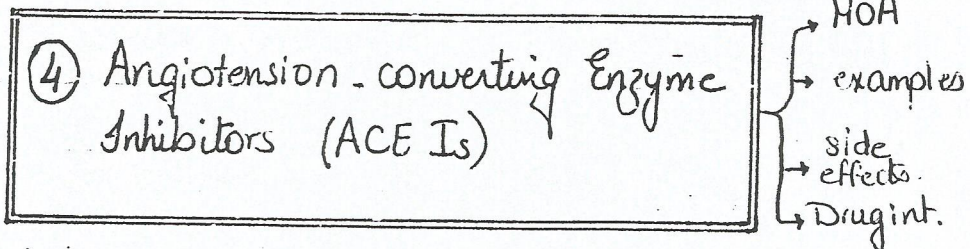 ④ Angiotension-converting Enzyme
Inhibitors (ACE Is)
MOA
examples
side
effects.
Drug int.